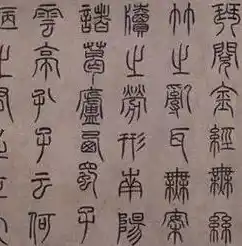 琴閱金經無絲
竹之亂耳無案
牘之勞形南陽
諸葛廬西蜀子
雲亭孔子云何